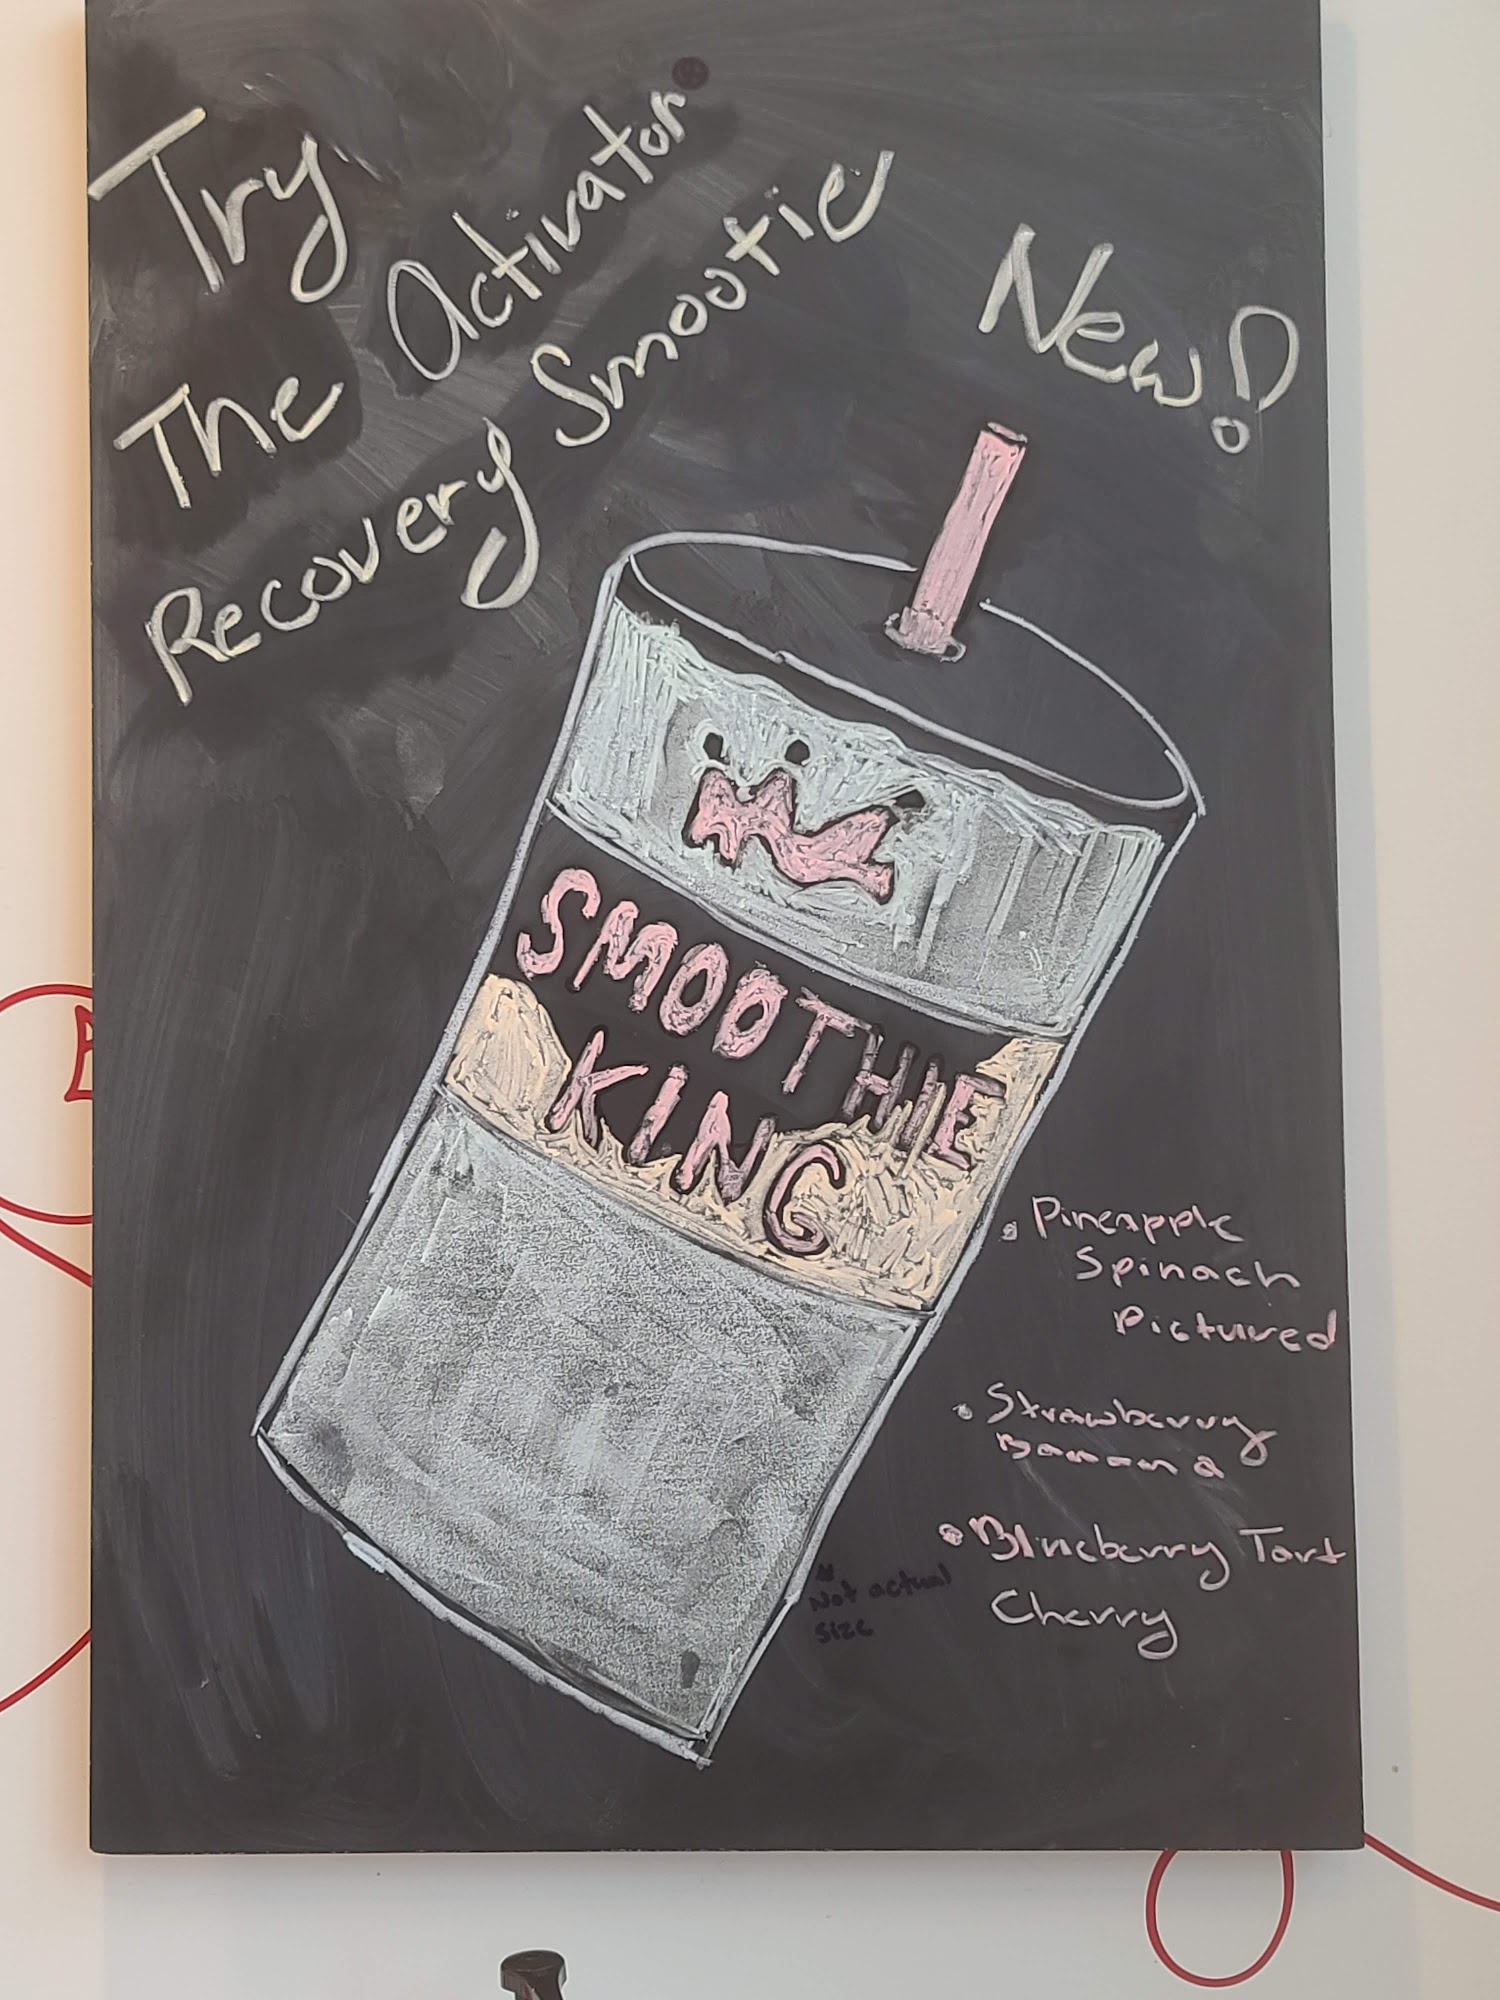 Try
The Activator®
Recovery Smootie
New!
SMOOTHIE
KING
• Pineapple
Spinach
Pictured
• Strawberry
Banana
• Blueberry Tart
Cherry
* Not actual
size